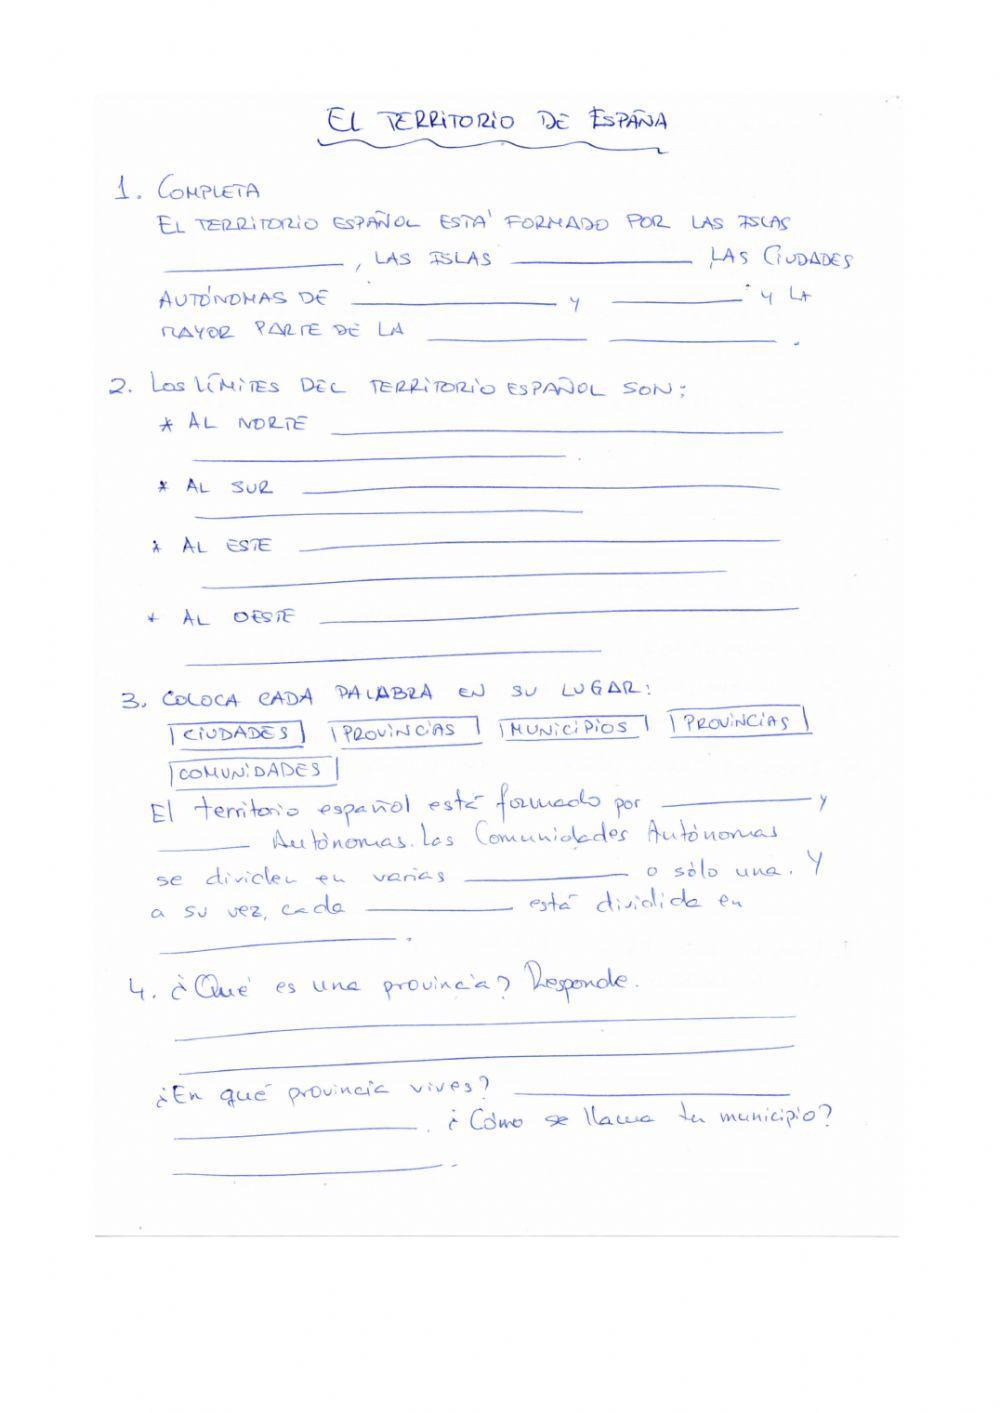 EL TERRITORIO DE ESPAÑA
1. COMPLETA
EL TERRITORIO ESPAÑOL ESTÁ FORMADO POR LAS ISLAS
____________, LAS ISLAS ____________ LAS CIUDADES
AUTÓNOMAS DE ____________ Y ____________ Y LA
MAYOR PARTE DE LA ____________ ____________.
2. LOS LÍMITES DEL TERRITORIO ESPAÑOL SON:
* AL NORTE ____________
____________.
* AL SUR ____________
____________
* AL ESTE ____________
____________
* AL OESTE ____________
____________
3. COLOCA CADA PALABRA EN SU LUGAR:
CIUDADES PROVINCIAS MUNICIPIOS PROVINCIAS
COMUNIDADES
El territorio español está formado por ____________ y
____________ Autónomas. Las Comunidades Autónomas
se dividen en varias ____________ o sólo una. Y
a su vez, cada ____________ está dividida en
____________.
4. ¿Qué es una provincia? Responde.
____________
____________
¿En qué provincia vives? ____________
____________. ¿Cómo se llama tu municipio?
____________.